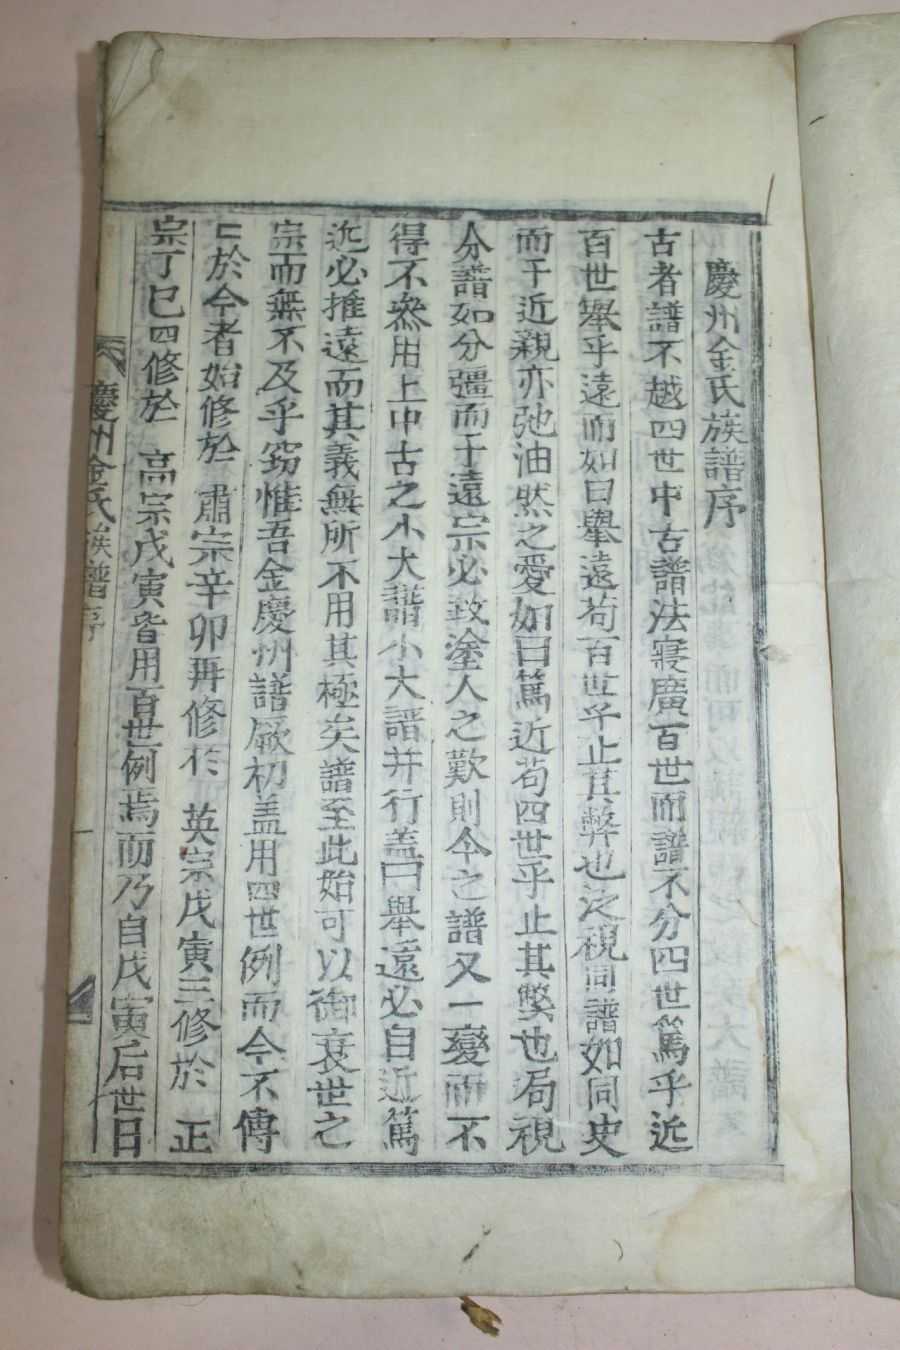 慶州金氏族譜序
古者譜不越四世中古譜法寖廣百世而譜不分四世篤乎近
百世擧乎遠而如曰擧遠苟百世乎止其弊也泛視同譜如同史
而于近親亦弛油然之愛如曰篤近苟四世乎止其弊也局視
分譜如分疆而于遠宗必致塗人之歎則今之譜又一變而不
得不叅用上中古之小大譜小大譜并行盖曰擧遠必自近篤
近必推遠而其義無所不用其極矣譜至此始可以御衰世之
宗而無不及乎窃惟吾金慶州譜厥初盖用四世例而今不傳
於今者始修於 肅宗辛卯再修於 英宗戊寅三修於 正
宗丁巳四修於 高宗戊寅皆用百世例焉而乃自戊寅后世日
慶州金氏族譜序